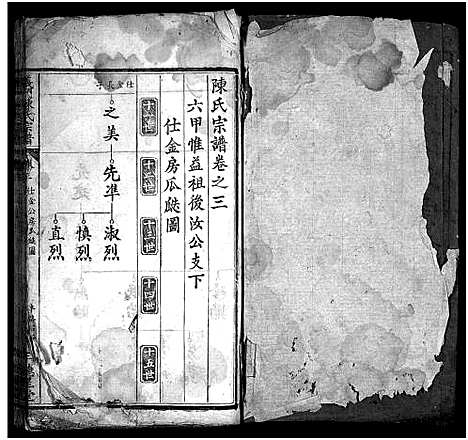 陳氏宗譜卷之三
六甲惟益祖後汝公支下
仕金房瓜瓞圖
十一世
十二世
十三世
十四世
十五世
仕金長子
之美
先準
淑烈
慎烈
直烈
陳氏宗譜
仕金公房瓜瓞圖